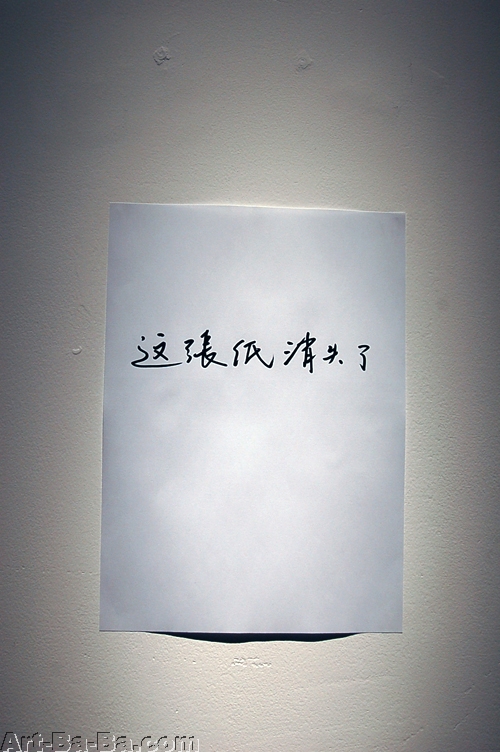 这張纸消失了
Art-Ba-Ba.com